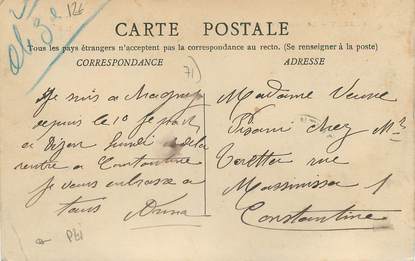 CARTE POSTALE
Tous les pays étrangers n'acceptent pas la correspondance au recto. (Se renseigner à la poste)
CORRESPONDANCE
ADRESSE
71
Je suis a
depuis le 10 je part
a Dijon lundi de la
rentre a Constantine
je vous embrasse a
tous Anna
Madame Veuve
Pisani chez Mr
rue
Massinissa 1
Constantine